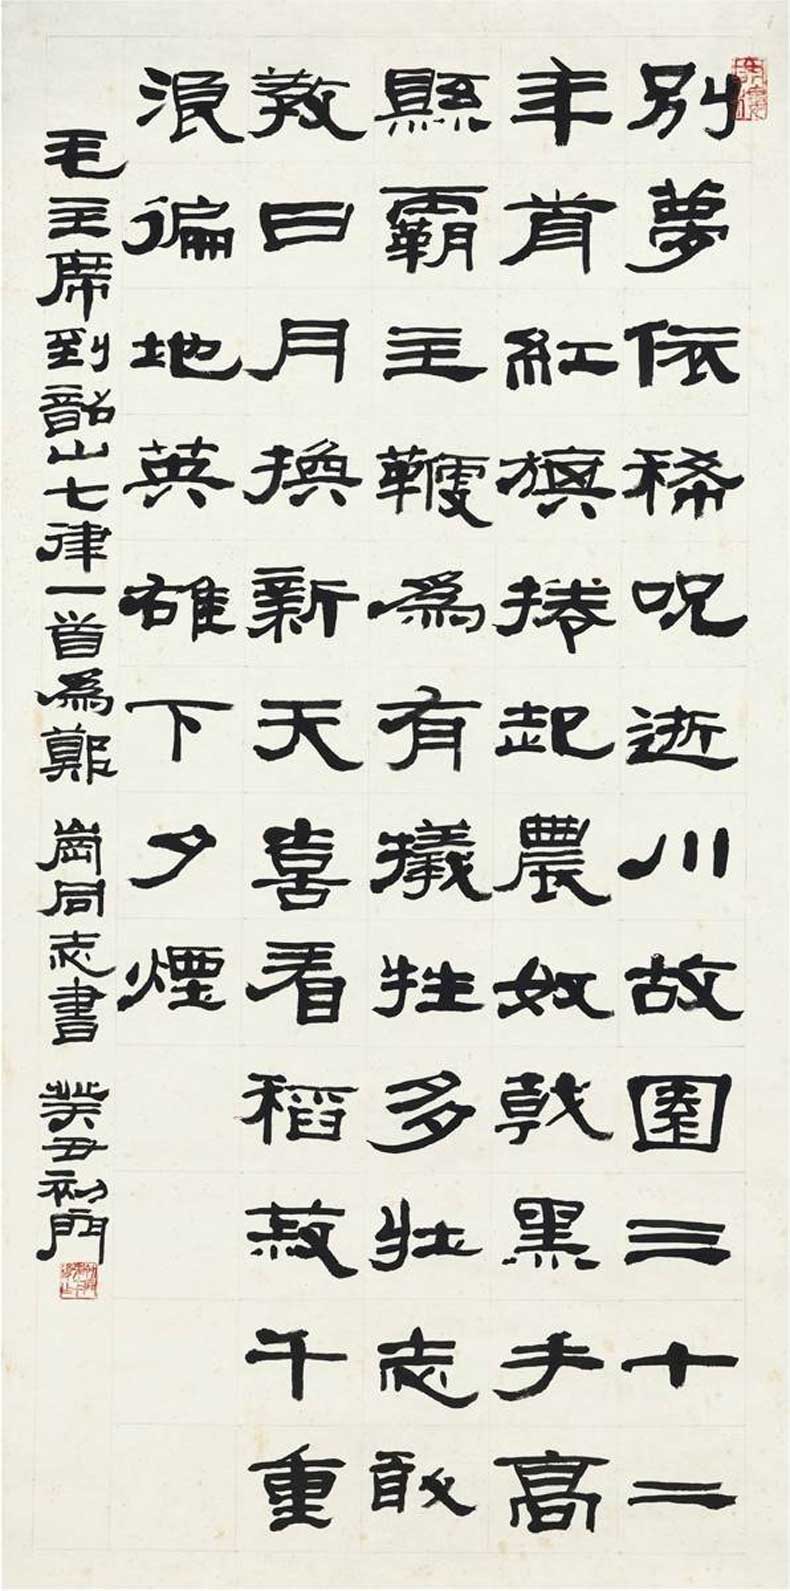 別夢依稀呪逝川故園三十二
年前紅旗捲起農奴戟黑手高
縣霸主鞭為有犧牲多壯志敢
教日月換新天喜看稻菽千重
浪徧地英雄下夕煙
毛主席到韶山七律一首為鄭 崗同志書 癸丑初